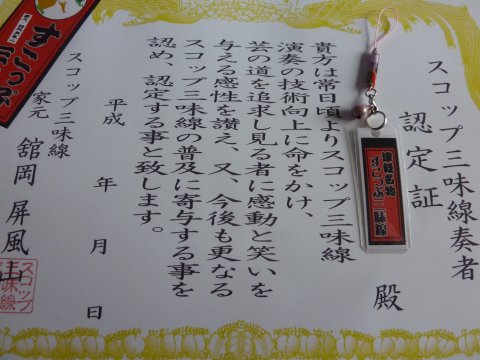 スコップ三味線奏者
認定証
殿
貴方は常日頃よりスコップ三味線
演奏の技術向上に命をかけ、
芸の道を追求し見る者に感動と笑いを
与える感性を讃え、又、今後も更なる
スコップ三味線の普及に寄与する事を
認め、認定する事と致します。
平成　年　月　日
スコップ三味線
家元　舘岡屏風山
スコップ
三味線
津軽名物
すこっぷ三味線
すこっぷ